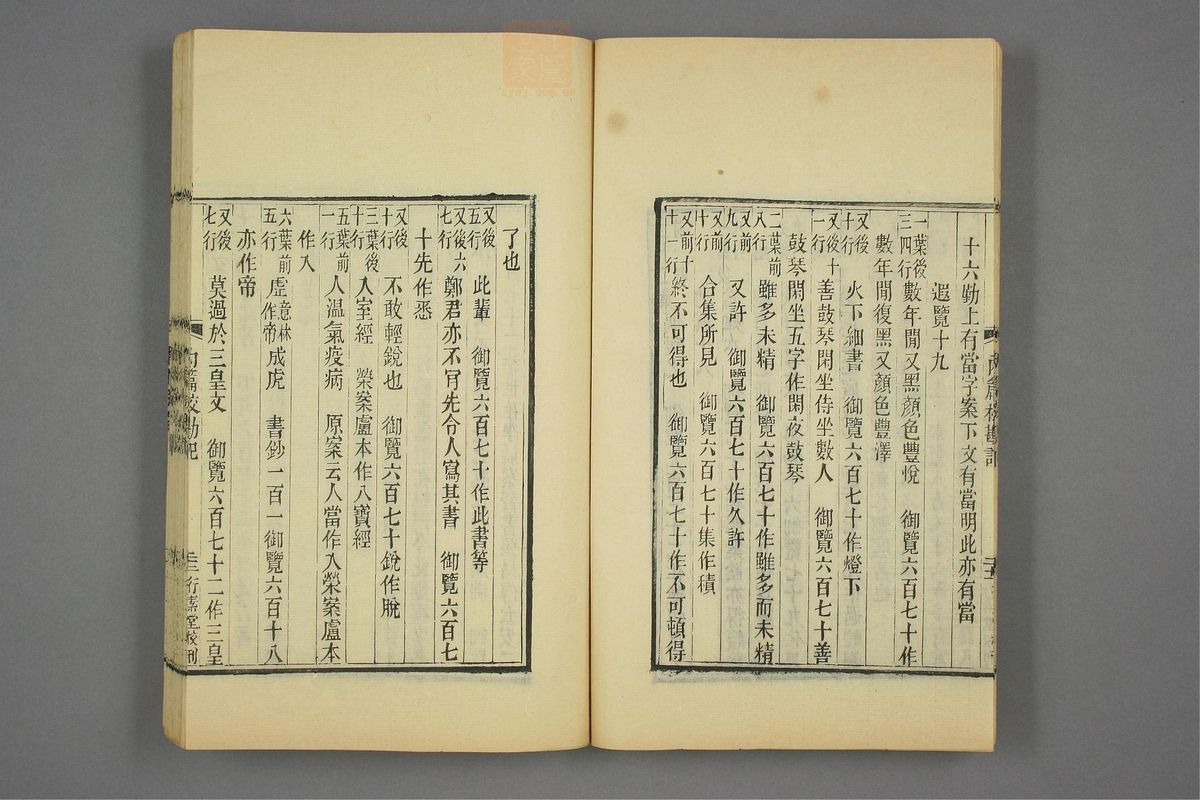 十六勤上有當字案下文有當明此亦有當
遐覽十九
一葉後三四行數年間又黑顏色豐悅　御覽六百七十作
數年間復黑又顏色豐澤
又後十行　火下細書　御覽六百七十作燈下
又後十一行　善鼓琴閑坐侍坐數人　御覽六百七十善
鼓琴閑坐五字作閑夜鼓琴
二葉前八行　雖多未精　御覽六百七十作雖多而未精
又前九行　又許　御覽六百七十作久許
又前十行　合集所見　御覽六百七十集作積
又前十十一行　終不可得也　御覽六百七十作不可頓得
了也
又後五行　此輩　御覽六百七十作此書等
又後六七行　鄭君亦不肎先令人寫其書　御覽六百七
十先作悉
又後十行　不敢輕銳也　御覽六百七十銳作脫
三葉後十行　入室經　榮案盧本作八寶經
五葉前一行　人溫氣疫病　原案云人當作入榮案盧本
作入
六葉前五行　虛意林作帝成虎　書鈔一百一御覽六百十八
亦作帝
又後七行　莫過於三皇文　御覽六百七十二作三皇
內篇校勘記
平津堂校刊